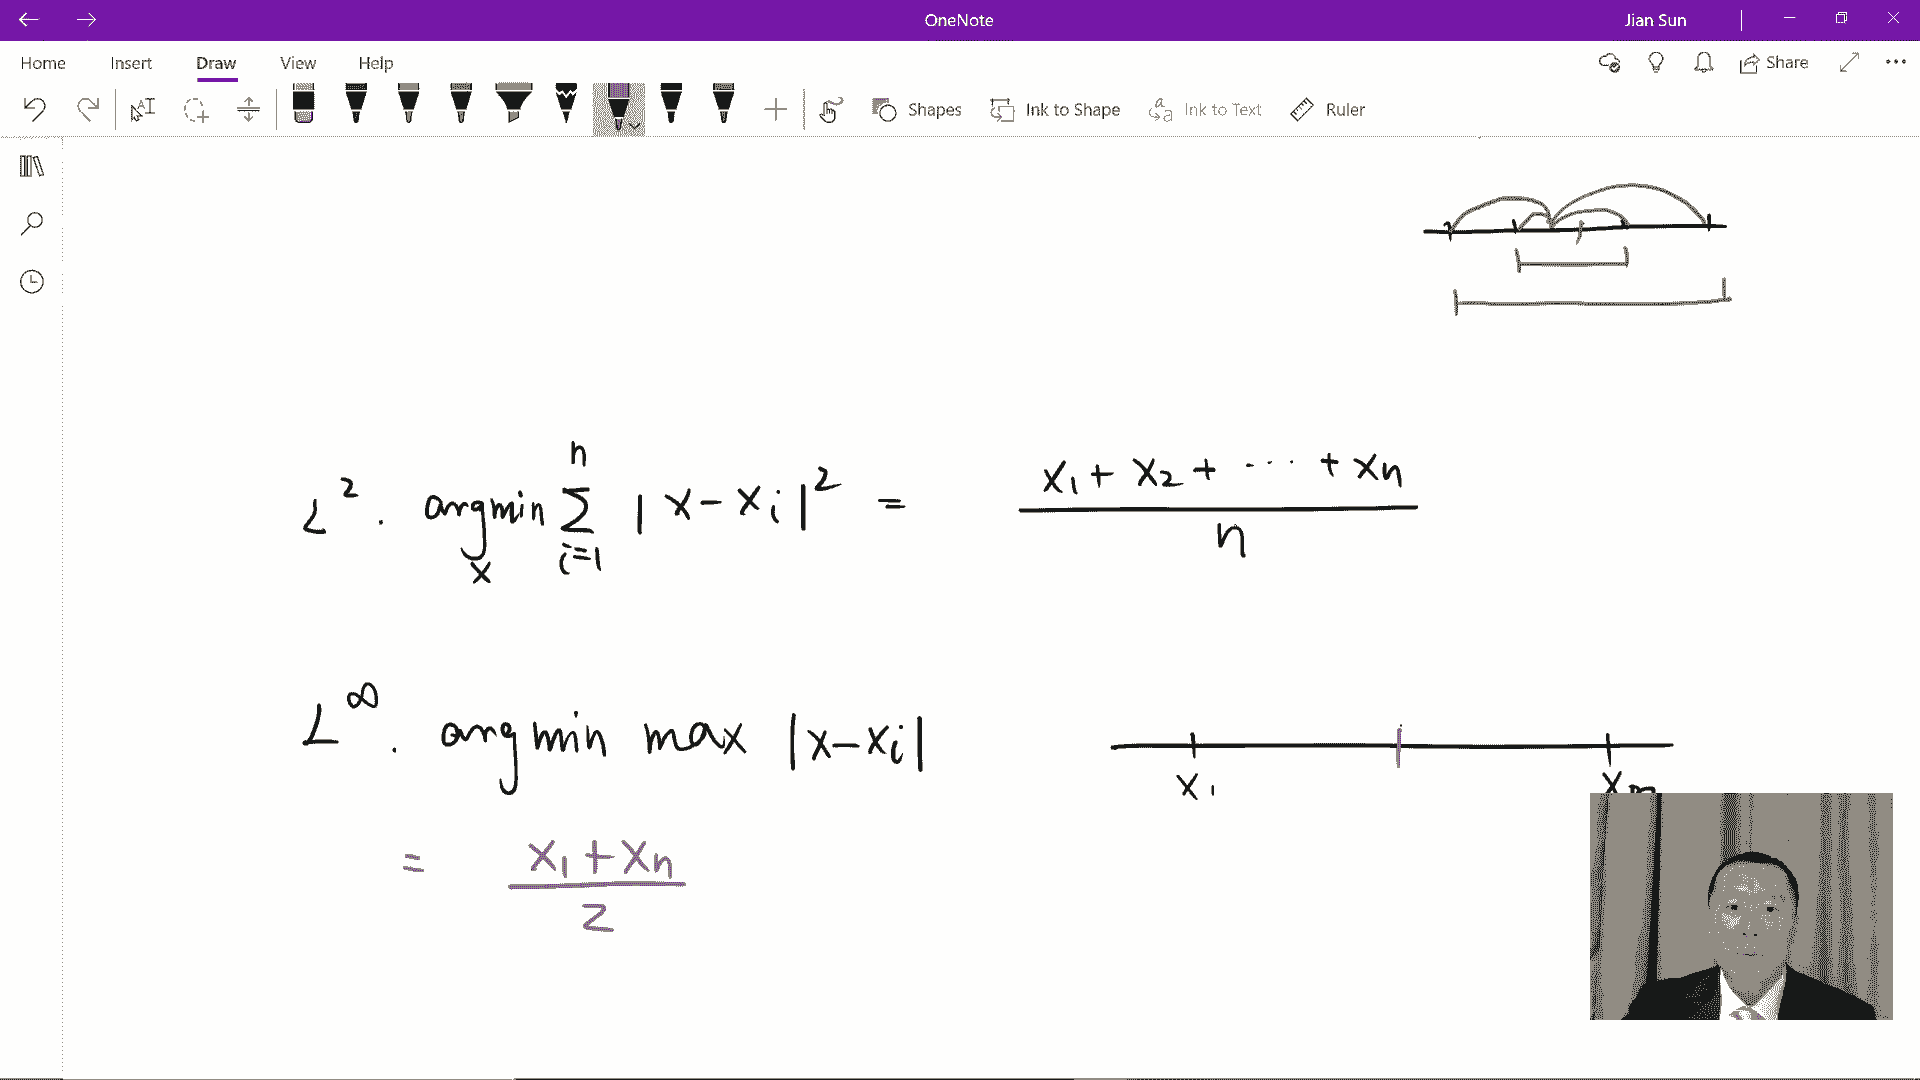 OneNote
Jian Sun
Home Insert Draw View Help
Share
Shapes Ink to Shape Ink to Text Ruler
L². argmin_x ∑_{i=1}^{n} |x-xᵢ|² = (x₁ + x₂ + ··· + xₙ) / n
L^∞. argmin max |x-xᵢ|
x₁
= (x₁+xₙ) / 2